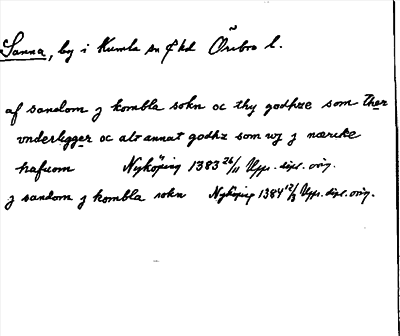 Sanna, by i Kumla sn o hd Örebro l.
af sandom j kombla sokn oc thy godhze som ther
vnderligger oc alt annat godhz som wj j nærike
hafuom Nyköping 1383 26/11 Upps. dipl. orig.
j sandom j kombla sokn Nyköping 1384 12/3 Upps. dipl. orig.